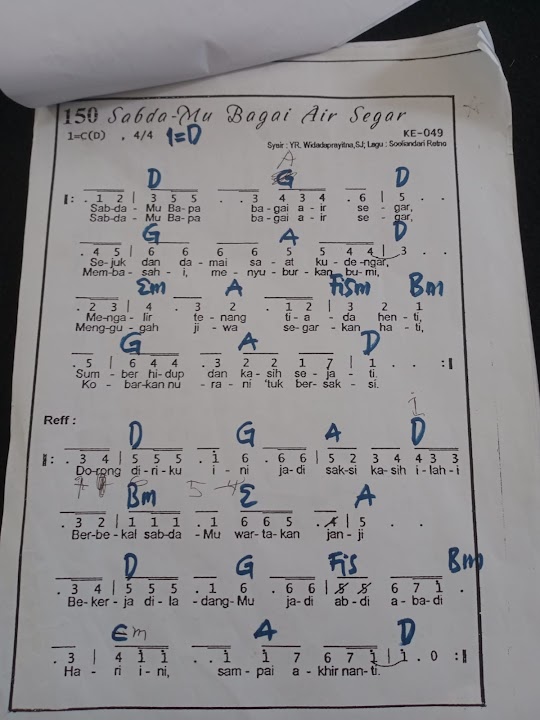 150 Sabda-Mu Bagai Air Segar
1=C(D) . 4/4 1=D KE-049
Syair : YR. Widadaprayitna,SJ; Lagu : Soeliandari Retno
A
D G D
|: . 1 2 | 3 5 5 . . 3 4 3 4 . 6 | 5 . .
Sab-da - Mu Ba-pa ba-gai a-ir se - gar,
Sab-da - Mu Ba-pa ba-gai a-ir se - gar,
G A D
. 4 5 | 6 6 6 6 6 5 5 4 4 | 3 . .
Se-juk dan da-mai sa-at ku-de-ngar,
Mem-ba-sah-i, me-nyu-bur-kan bu-mi,
Em A Fism Bm
. 2 3 | 4 . 3 2 . 1 2 | 3 2 1
Me-nga-lir te-nang ti-a-da hen-ti,
Meng-gu-gah ji-wa se-gar-kan ha-ti,
G A D
. 5 | 6 4 4 . 3 2 2 1 7 | 1 . . :|
Sum-ber hidup dan ka-sih se-ja-ti.
Ko-bar-kan nu-ra-ni 'tuk ber-sak-si.
Reff :
D G A D
|: . 3 4 | 5 5 5 . 1 6 . 6 6 | 5 2 3 4 4 3 3
Do-rong di-ri-ku i-ni ja-di sak-si ka-sih i-lah-i
5 4
Bm E A
. 3 2 | 1 1 1 . 1 6 6 5 . 4 | 5 . .
Ber-be-kal sabda-Mu war-ta-kan jan-ji
D G Fis Bm
. 3 4 | 5 5 5 . 1 6 . 6 6 | 5 5 6 7 1 .
Be-ker-ja di-la-dang-Mu ja-di ab-di a-ba-di
Em A D
. 3 | 4 1 1 . . 1 1 7 6 7 1 | 1 . 0 :|
Ha-ri i-ni, sam-pai a-khir nan-ti.